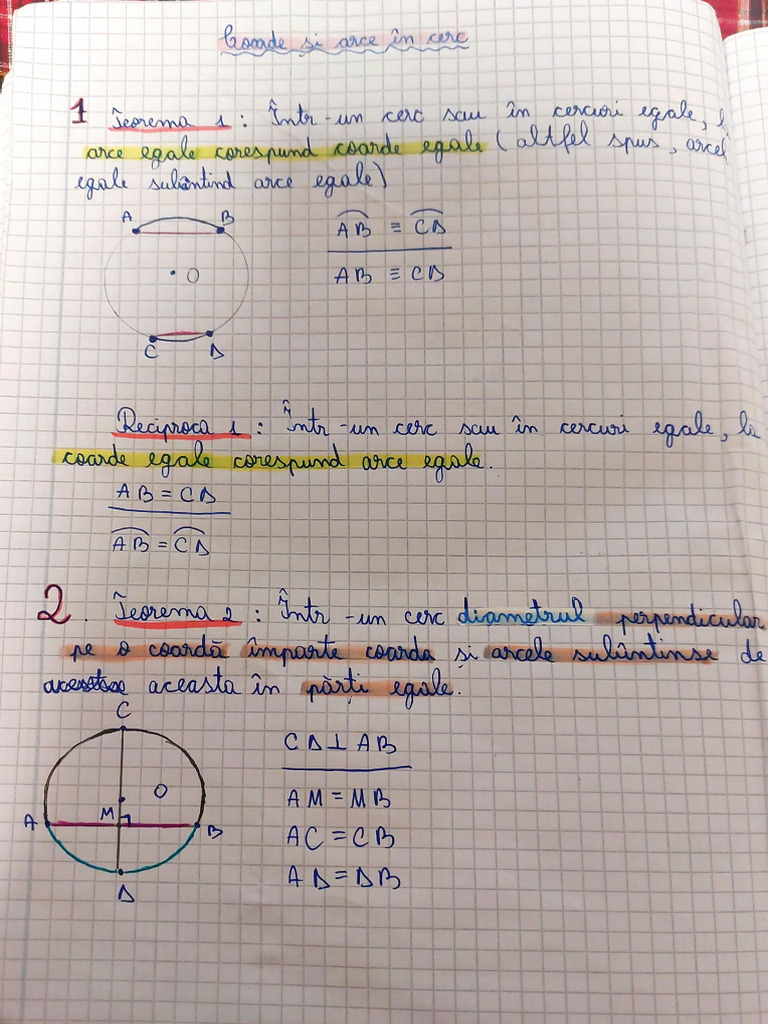 Coarde și arce în cerc
1 Teorema 1 : Într-un cerc sau în cercuri egale, l
arce egale corespund coarde egale (altfel spus, arcel
egale subântind arce egale)
A B
AB ≡ CD
O
AB ≡ CD
C D
Reciproca 1 : Într-un cerc sau în cercuri egale, la
coarde egale corespund arce egale.
AB = CD
AB = CD
2. Teorema 2 : Într-un cerc diametrul perpendicular
pe o coardă împarte coarda și arcele subântinse de
aceasta în părți egale.
C
CD ⊥ AB
O
AM = MB
A M B
AC = CB
AD = DB
D